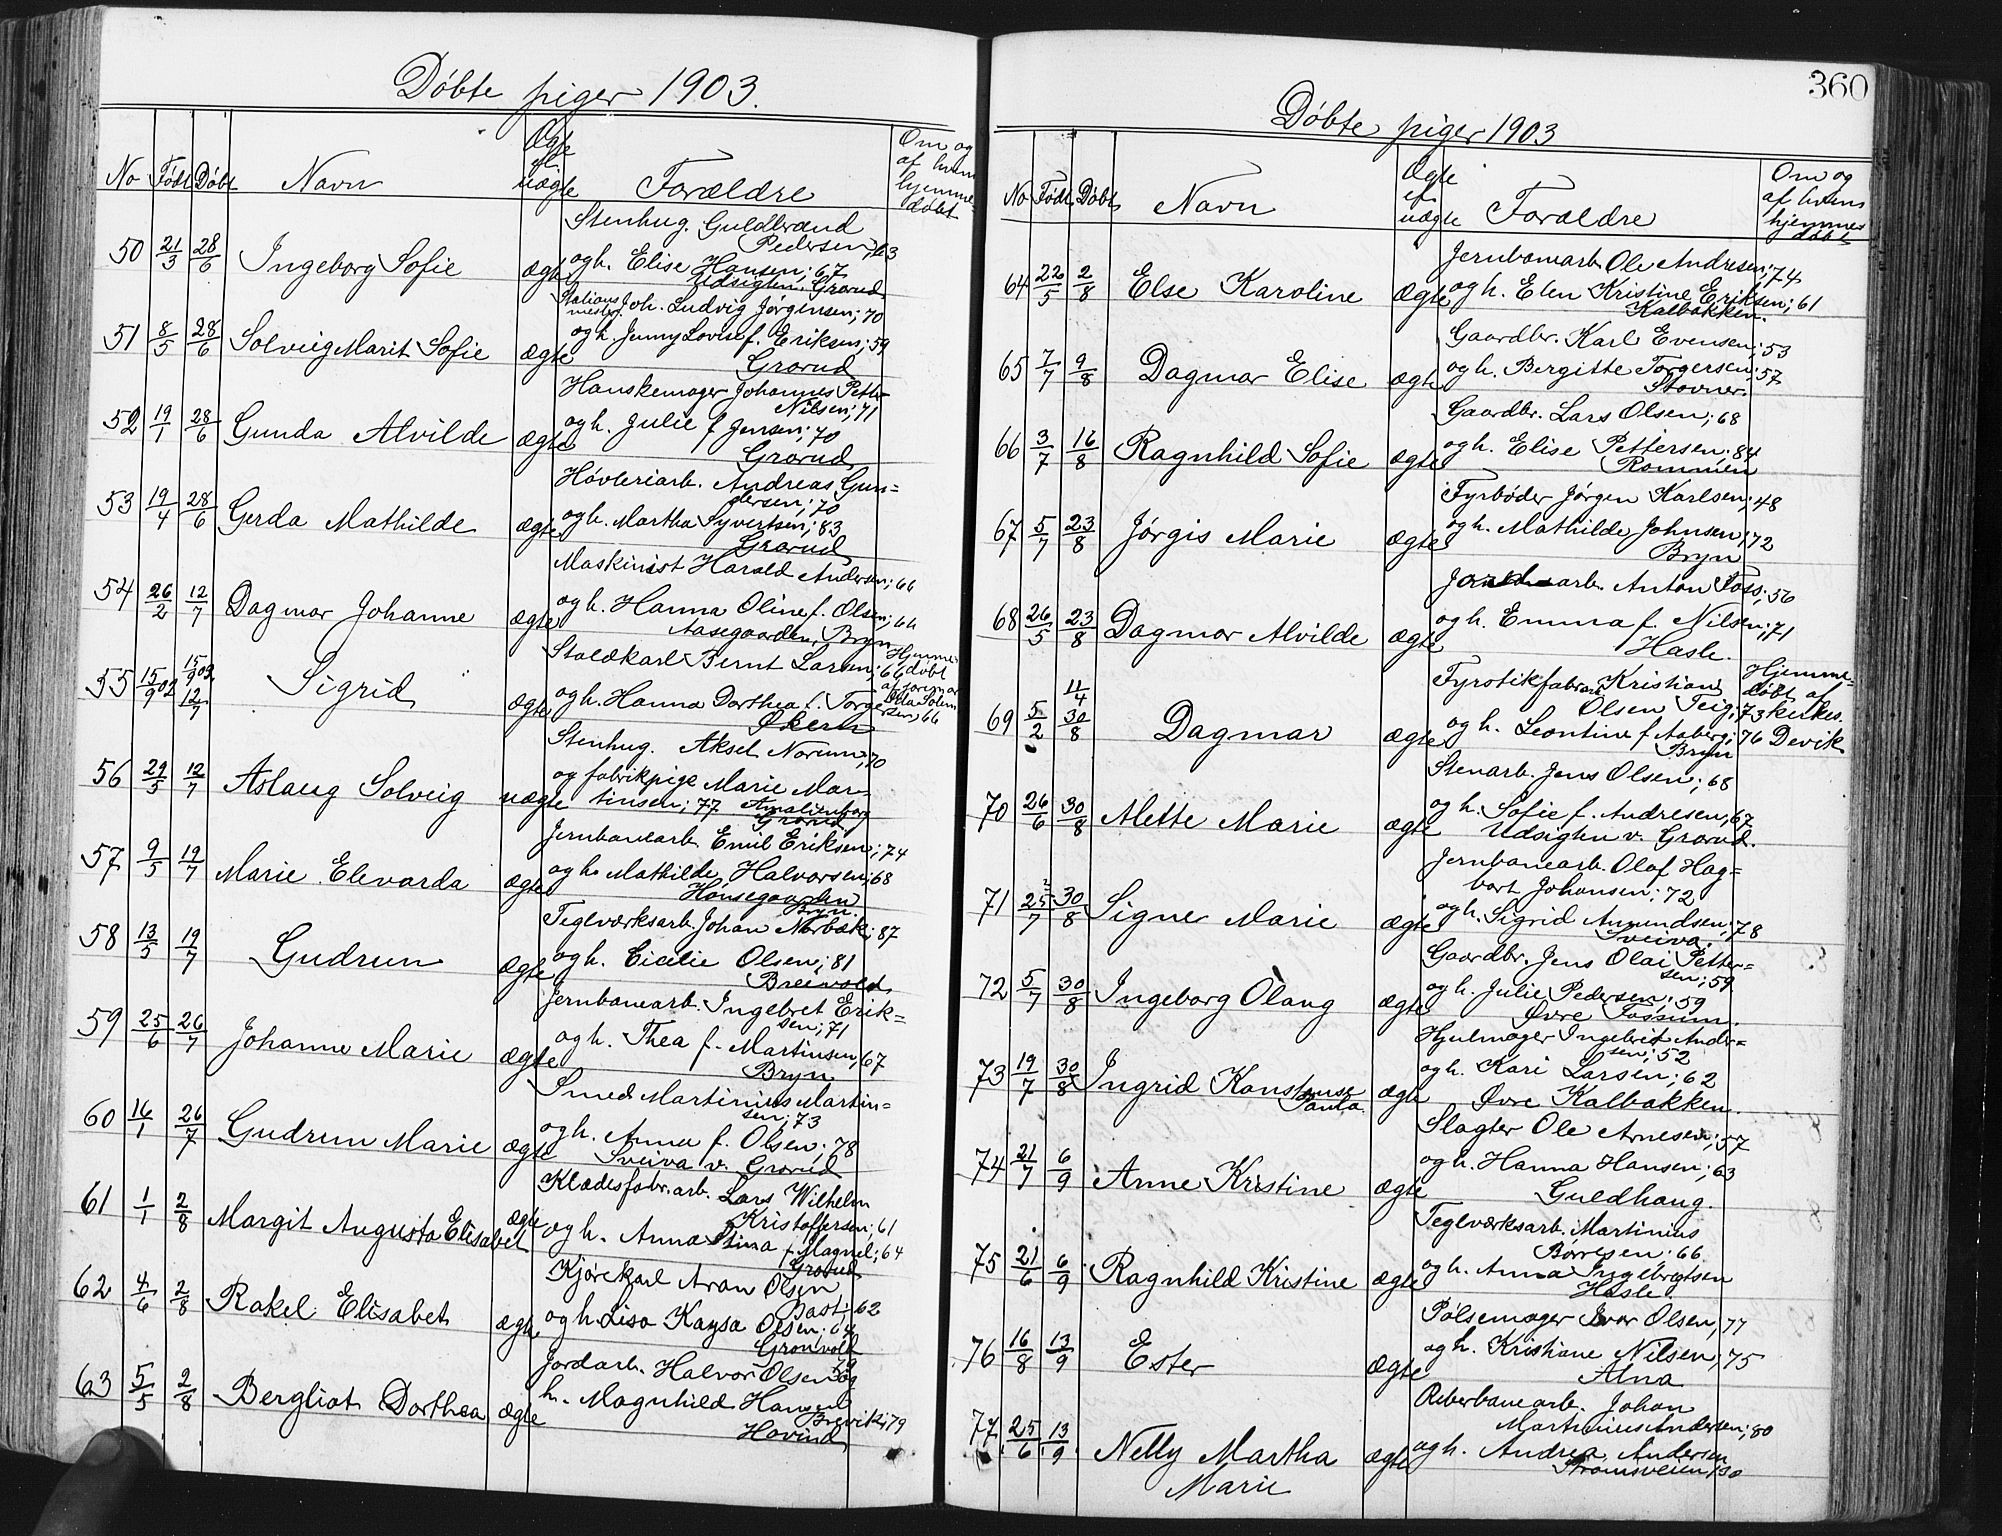 Døbte piger 1903.
No Født Døbt Navn Ægte el. uægte Forældre Om og af hvem hjemme-døbt
50 21/3 28/6 Ingeborg Sofie ægte Stenhug. Guldbrand
Pedersen; 63
og h. Elise Hansen; 67
Udsigten, Grorud
51 8/5 28/6 Solveig Marit Sofie ægte Stations mester Joh. Ludvig Jørgensen; 70
og h. Jenny Lovise f. Eriksen; 59
Grorud
52 19/1 28/6 Gunda Alvilde ægte Hanskemager Johannes Petter
Nilsen; 71
og h. Julie f. Jensen; 70
Grorud
53 19/4 28/6 Gerda Mathilde ægte Høvleriarb. Andreas Gun=
dersen; 70
og h. Martha Syvertsen; 83
Grorud
54 26/2 12/7 Dagmar Johanne ægte Maskinist Harald Andersen; 66
og h. Hanna Oline f. Olsen; 66
Aasegaarden, Bryn
55 15/9 02 15/9 02 12/7 Sigrid ægte Staldkarl Bernt Larsen; 66 Hjemme-døbt
og h. Hanna Dorthea f. Torger
sen; 66
Økern
56 29/5 12/7 Aslaug Solveig uægte Stenhug. Aksel Norum; 70
og fabrikpige Marie Mar
tinsen; 77 Amalienborg
Grorud
57 9/5 19/7 Marie Elevarda ægte Jernbanearb. Emil Eriksen; 74
og h. Mathilde Halvorsen; 68
Hønsegaarden
Bryn.
58 13/5 19/7 Gudrun ægte Teglværksarb. Johan Norbæk; 87
og h. Cicilie Olsen; 81
Breivold
59 25/6 26/7 Johanne Marie ægte Jernbanearb. Ingebret Erik=
sen; 71
og h. Thea f. Martinsen; 67
Bryn
60 16/1 26/7 Gudrun Marie ægte Smed Martinius Martin=
sen; 73
og h. Anna f. Olsen; 78
Sveiva v. Grorud
61 1/1 2/8 Margit Augusta Elisabet ægte Klædesfabr.arb. Lars Wilhelm
Kristoffersen; 61
og h. Anna Stina f. Magnel; 64
Grorud
62 4/6 2/8 Rakel Elisabet ægte Kjørekarl Aron Olsen
Bast; 62
og h. Lisa Kaysa Olsen; 64
Grønvold
63 5/5 2/8 Bergliot Dorthea ægte Jordarb. Halvor Olsen 79 og
h. Magnhild Hansen
Brevik; 79
Hovind
360
Døbte piger 1903
No Født Døbt Navn Ægte el. uægte Forældre Om og af hvem hjemme døbt
64 22/5 2/8 Else Karoline ægte Jernbanarb. Ole Andresen; 74
og h. Elen Kristine Eriksen; 61
Kalbakken.
65 7/7 9/8 Dagmar Elise ægte Gaardbr. Karl Evensen; 53
og h. Bergitte Torgersen; 57
Stovner.
66 3/7 16/8 Ragnhild Sofie ægte Gaardbr. Lars Olsen; 68
og h. Elise Pettersen; 84
Rommen
67 5/7 23/8 Jørgis Marie ægte Fyrbøder Jørgen Karlsen; 48
og h. Mathilde Johnsen; 72
Bryn
68 26/5 23/8 Dagmar Alvilde ægte arb. Anton Foss; 56
og h. Emma f. Nilsen; 71
Hasle.
69 5/2 11/4 30/8 Dagmar ægte Fyrstikfabrarb. Kristian Hjemme-
Olsen Teig; 73 døbt af kirkes.
og h. Leontine f. Aaberg; 76 Devik
Bryn
70 26/6 30/8 Alette Marie ægte Stenarb. Jens Olsen; 68
og h. Sofie f. Andresen; 67
Udsigten v. Grorud.
71 25/7 30/8 Signe Marie ægte Jernbanearb. Olaf Hag=
bart Johansen; 72
og h. Sigrid Amundsen; 78
Sveiva.
72 5/7 30/8 Ingeborg Olaug ægte Gaardbr. Jens Olai Petter=
sen; 59
og h. Julie Pedersen; 59
Øvre Fossum.
73 19/7 30/8 Ingrid Konstanse
Paula. ægte Hjulmager Ingebrit Ander=
sen; 52
og h. Kari Larsen; 62
Øvre Kalbakken.
74 21/7 6/9 Anne Kristine ægte Slagter Ole Arnesen; 57
og h. Hanna Hansen; 63
Guldhaug.
75 21/6 6/9 Ragnhild Kristine ægte Teglværksarb. Martinius
Børresen; 66
og h. Anna Ingebrigtsen
Hasle
76 16/8 13/9 Ester ægte Pølsemager Ivar Olsen; 77
og h. Kristiane Nilsen; 75
Alna
77 25/6 13/9 Nelly Martha
Marie ægte Reberbanearb. Johan
Martinius Andersen; 80
og h. Andrea Andersen
Strømsveien 130